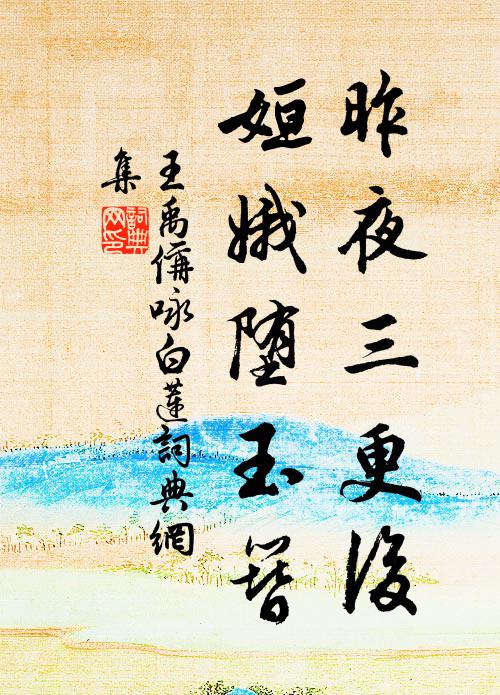 昨夜三更後
姮娥墮玉簪
王禹偁咏白蓮詞典網
集
詞典
网印